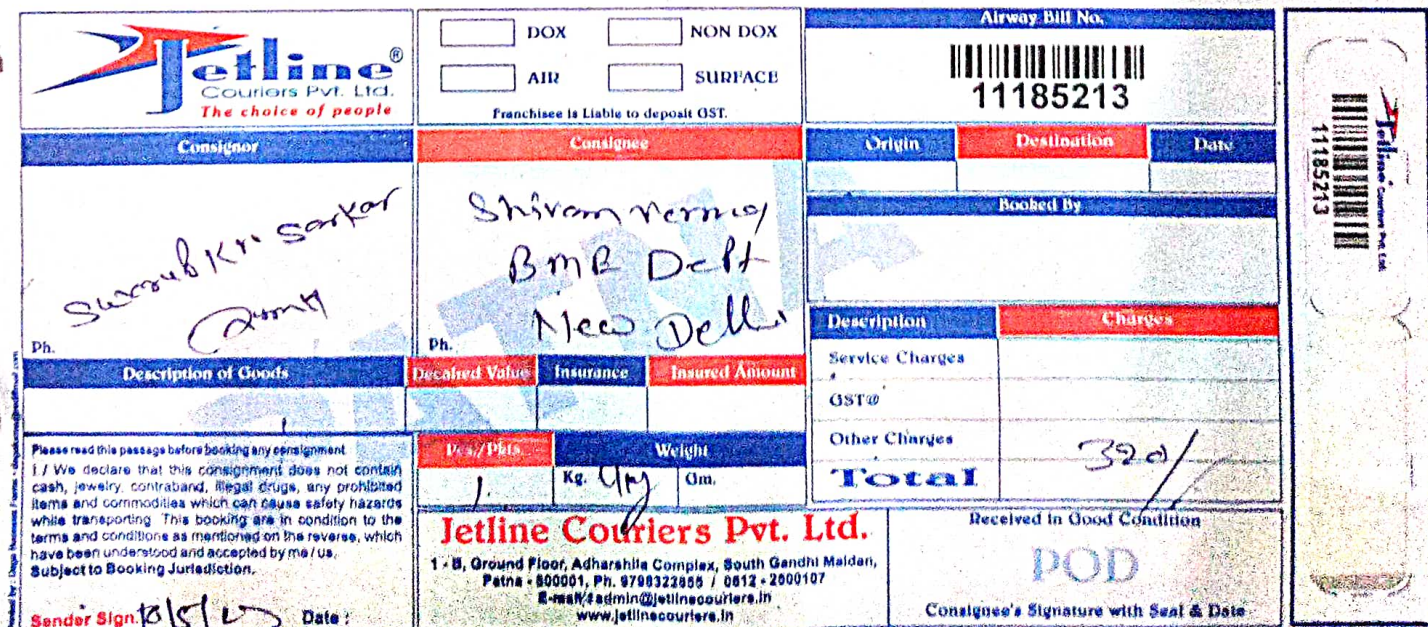 Jetline®
Couriers Pvt. Ltd.
The choice of people
DOX
NON DOX
AIR
SURFACE
Franchisee is Liable to deposit GST.
Airway Bill No.
11185213
Consignor
Kr. Sarkar
Ph.
Consignee
Shivam Verma
BMR Deptt
New Delhi
Ph.
Origin
Destination
Date
Booked By
Description of Goods
Decalred Value
Insurance
Insured Amount
Description
Charges
Service Charges
GST@
Other Charges
Total
320/
Please read this passage before booking any consignment
I / We declare that this consignment does not contain
cash, jewelry, contraband, illegal drugs, any prohibited
items and commodities which can cause safety hazards
while transporting. This booking are in condition to the
terms and conditions as mentioned on the reverse, which
have been understood and accepted by me / us.
Subject to Booking Jurisdiction.
Sender Sign.
Date :
Pcs./Pkts.
Weight
1.
Kg.
Gm.
Jetline Couriers Pvt. Ltd.
1 - B, Ground Floor, Adharshila Complex, South Gandhi Maidan,
Patna - 800001, Ph. 9798322855 / 0612 - 2500107
admin@jetlinecouriers.in
www.jetlinecouriers.in
Received in Good Condition
POD
Consignee's Signature with Seal & Date
Jetline Couriers Pvt. Ltd.
11185213